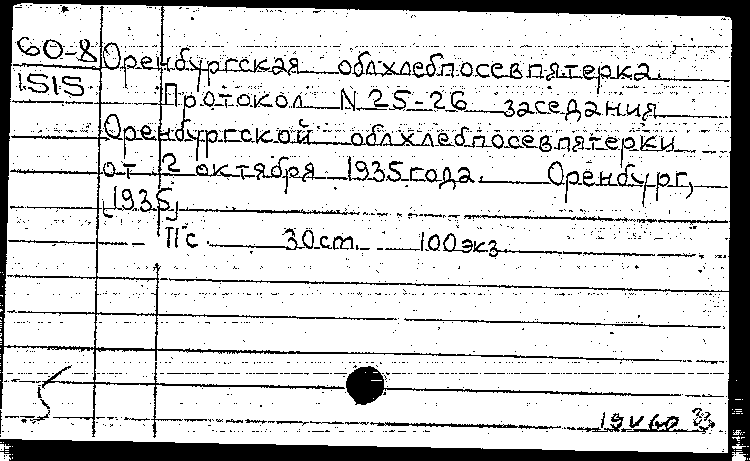 60-8 Оренбургская облхлебпосевпятерка.
1515 Протокол N 25-26 заседания
Оренбургской облхлебпосевпятерки
от 2 октября 1935 года. Оренбург,
[1935]
Пс 30 ст. 100 экз.
19 V 60